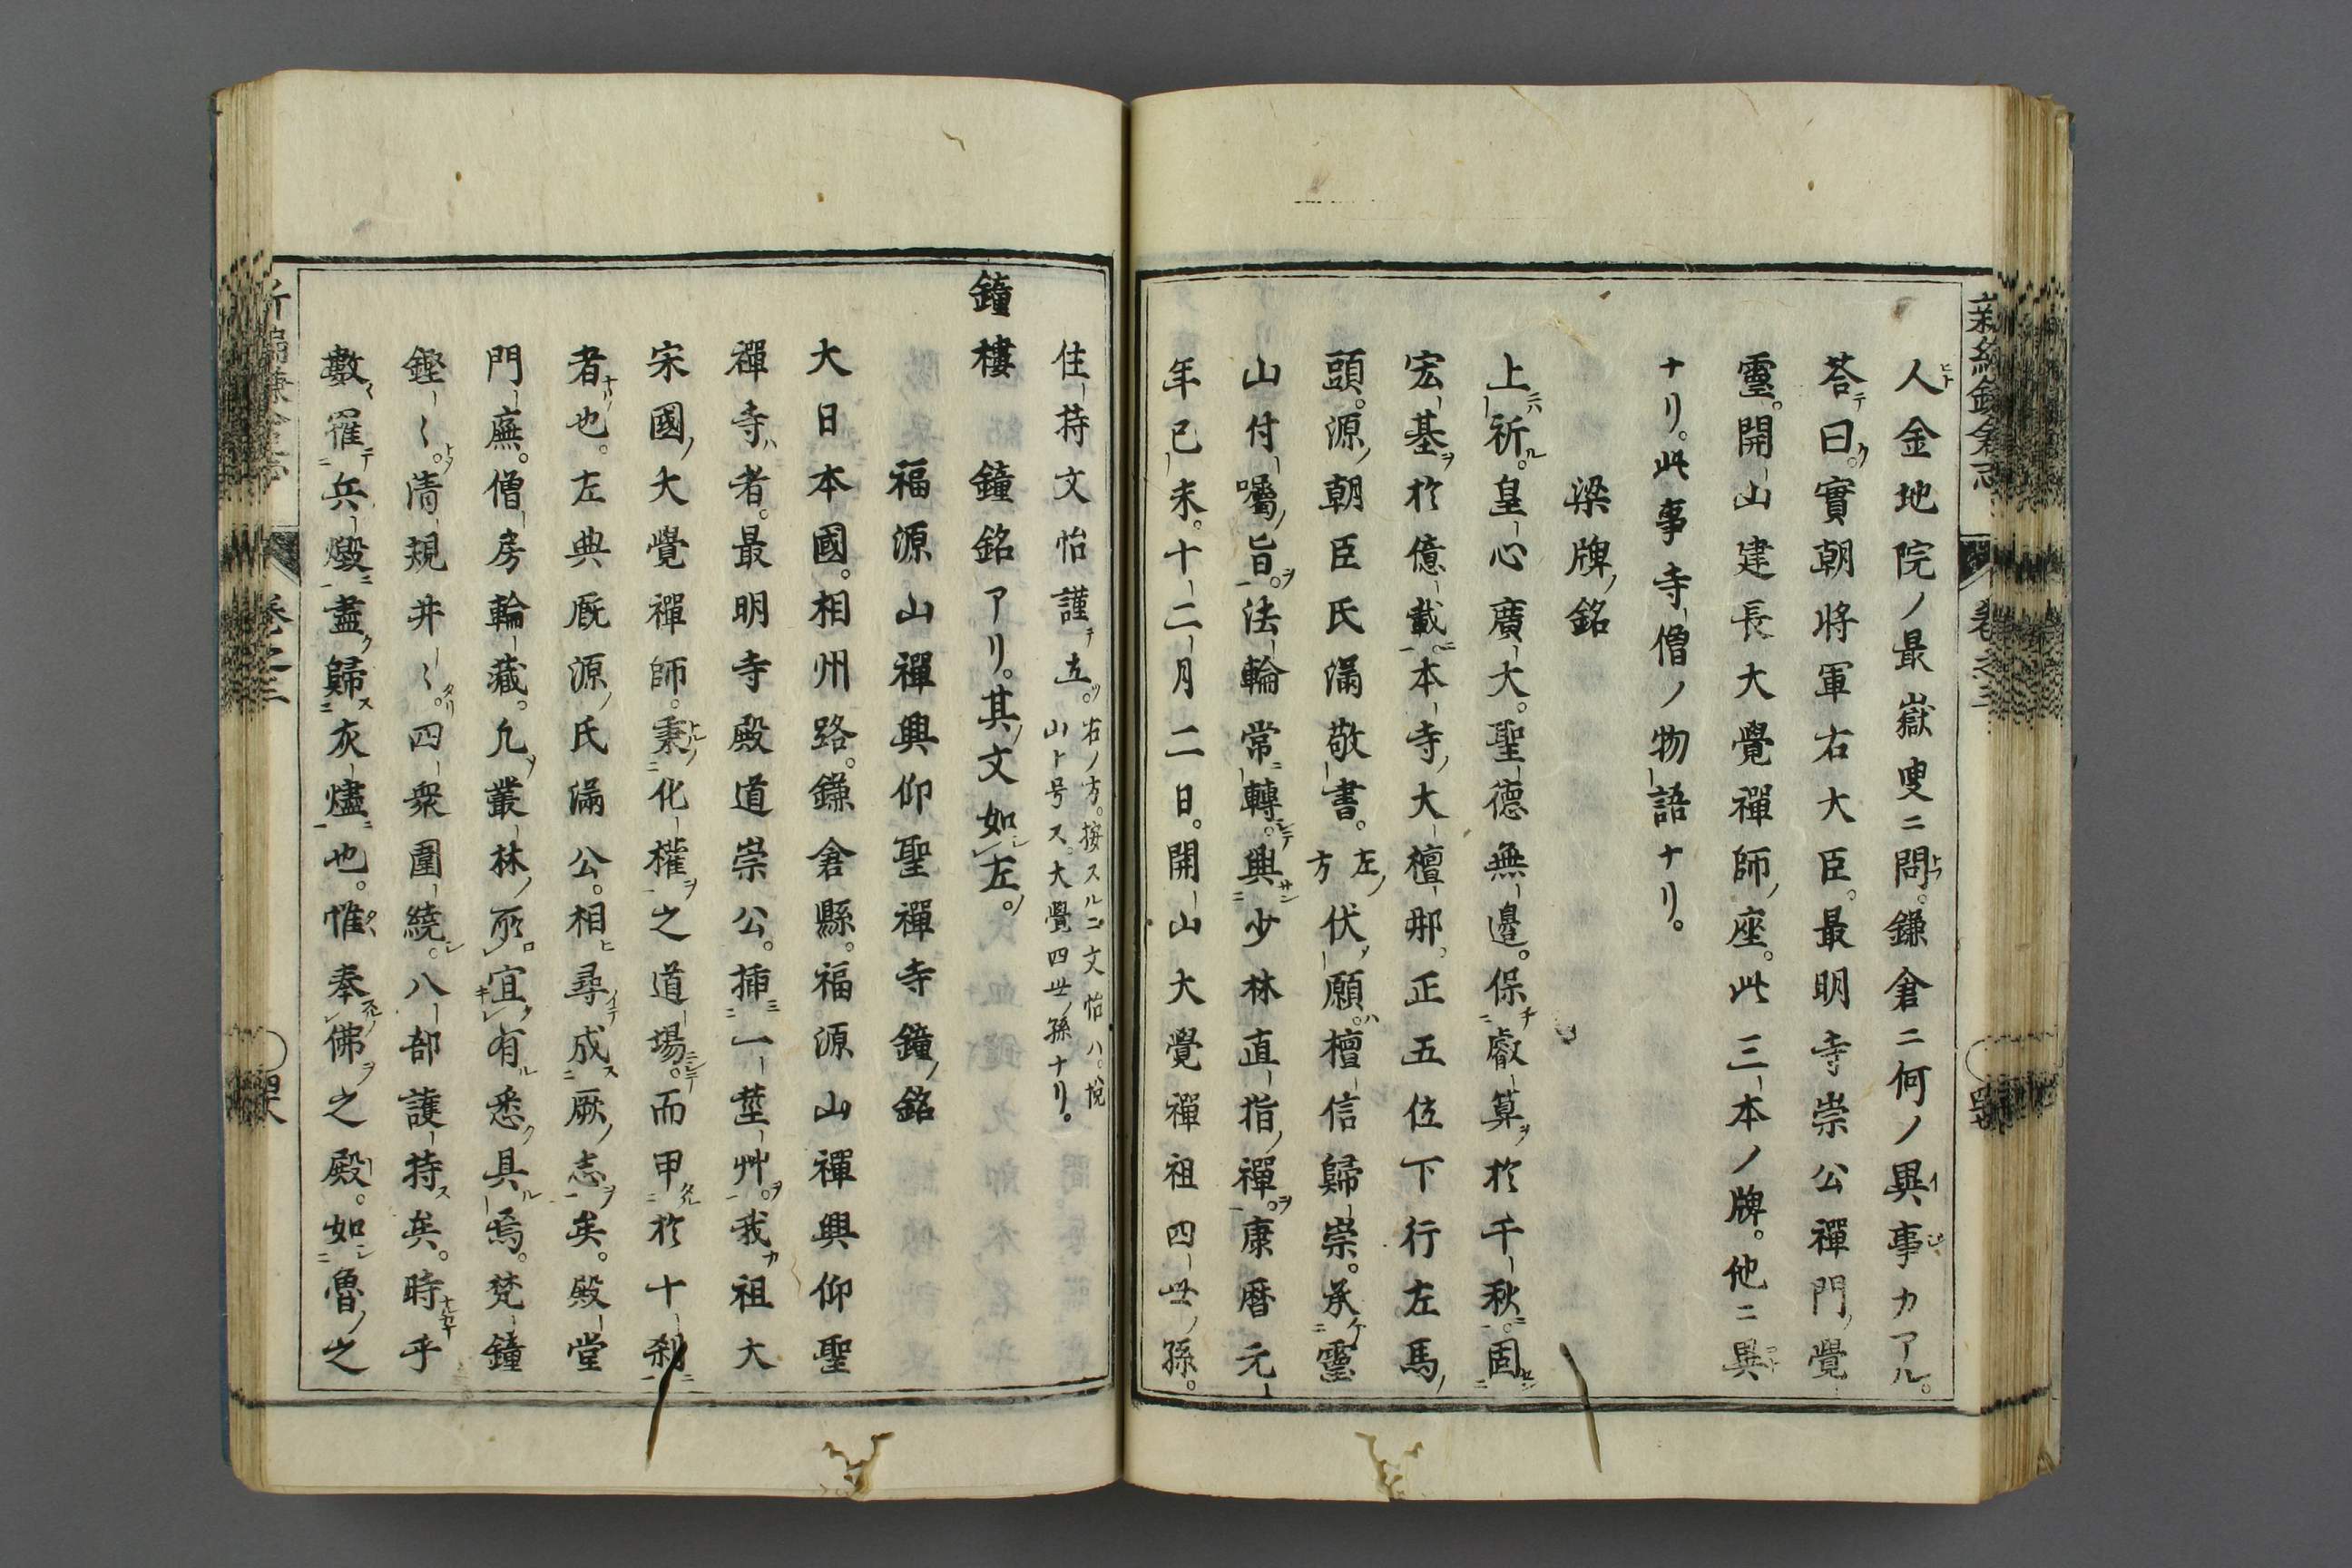 人金地院ノ最嶽叟ニ問。鎌倉ニ何ノ異事カアル。
荅曰。實朝將軍右大臣。最明寺崇公禪門覺
靈。開山建長大覺禪師座。此三本ノ牌。他ニ異
ナリ。此事寺僧ノ物語ナリ。
梁牌銘
上祈。皇心廣大。聖德無邉。保叡算於千秋。固
宏基於億載。本寺大檀那。正五位下行左馬
頭。源朝臣氏滿敬書。左方伏願。檀信歸崇。承靈
山付囑旨。法輪常轉。興少林直指禪。康暦元
年已未。十二月二日。開山大覺禪祖四世孫。
住持文怡謹立。右ノ方。按スルニ文怡ハ。悅
山ト号ス。大覺四世ノ孫ナリ。
鐘樓 鐘銘アリ。其文如左。
福源山禪興仰聖禪寺鐘銘
大日本國。相州路。鎌倉縣。福源山禪興仰聖
禪寺者。最明寺殿道崇公。挿一莖艸。我祖大
宋國大覺禪師。秉化權之道場。而甲於十刹
者也。左典厩源氏滿公。相尋成厥志矣。殿堂
門廡。僧房輪藏。凢叢林所宜有悉具焉。梵鐘
鏗〻。清規井〻。四衆圍繞。八部護持矣。時乎
數罹兵燬盡歸灰燼也。惟奉佛之殿。如魯之
新編鎌倉志
卷之三